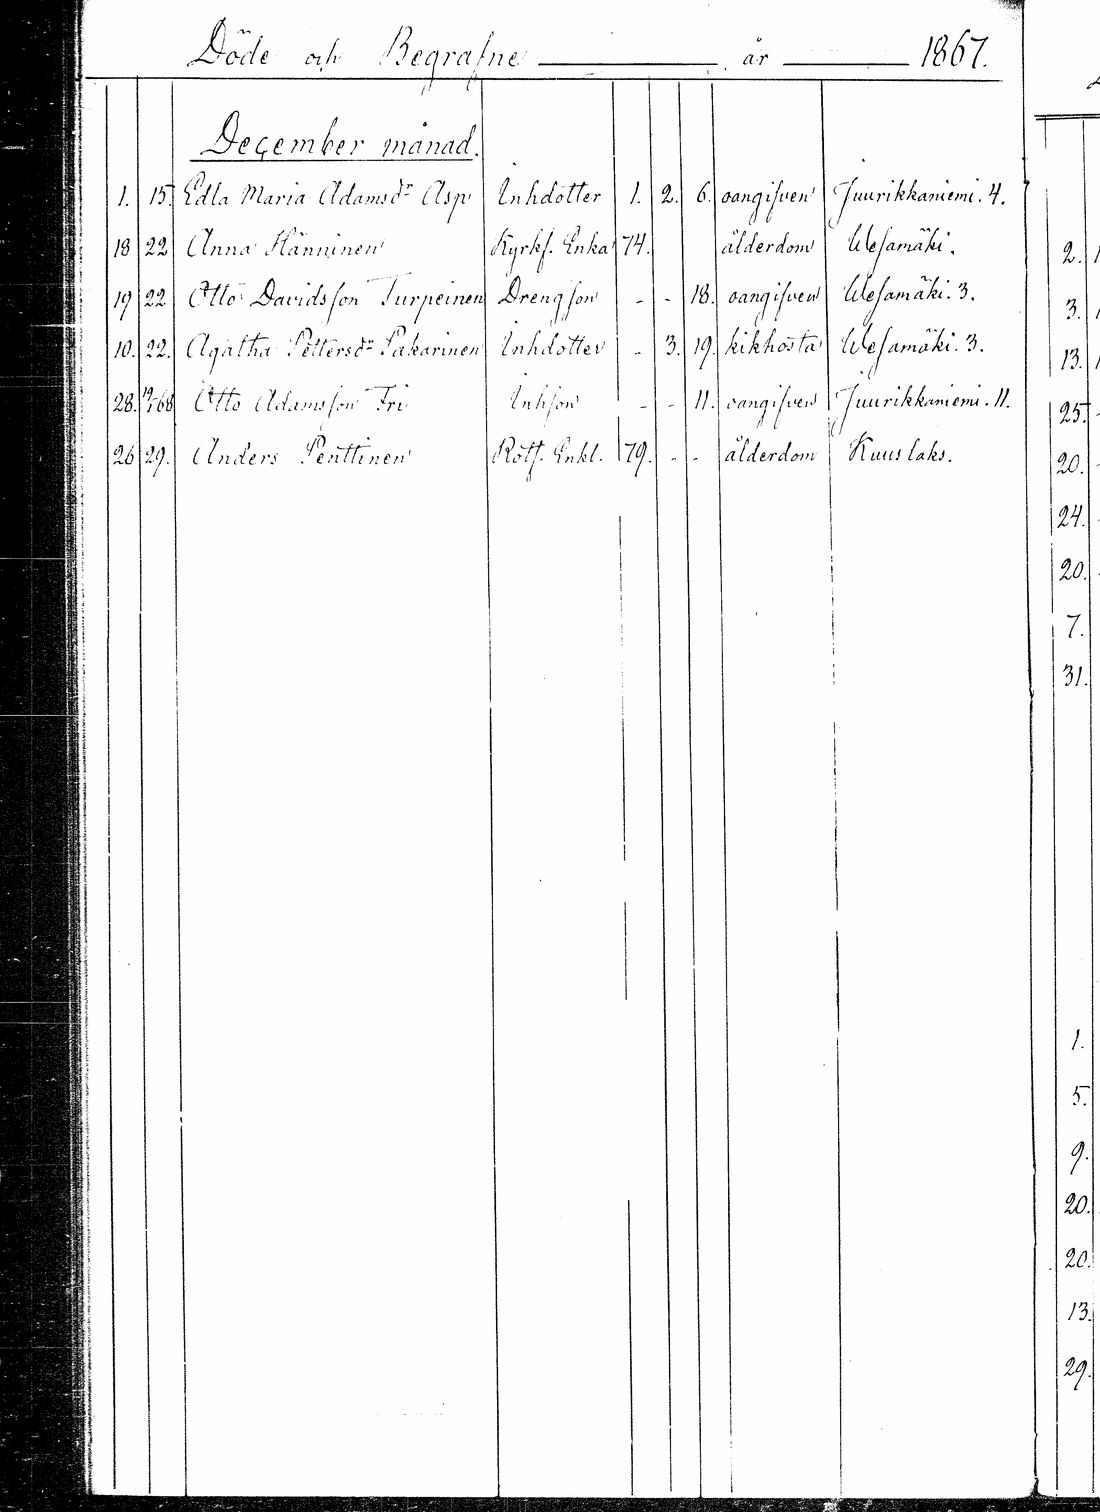 Döde och Begrafne år 1867.
December månad.
1. 15. Edla Maria Adamsdr Asp Inhdotter 1. 2. 6. oangifven Juurikkaniemi. 4.
18 22 Anna Hänninen Kyrkf. Enka 74. ålderdom Wesamäki.
19 22 Otto Davidsson Turpeinen Drengson - - 18. oangifven Wesamäki. 3.
10. 22. Agatha Pettersdr Pakarinen Inhdotter - 3. 19. kikhosta Wesamäki. 3.
28. 19/1 68 Otto Adamsson Fri Inhson - - 11. oangifven Juurikkaniemi. 11.
26 29. Anders Penttinen Rotf. Enkl. 79. - - ålderdom Kuuslaks.
2.
3.
13.
25.
20.
24.
20.
7.
31.
1.
5.
9.
20.
20.
13.
29.